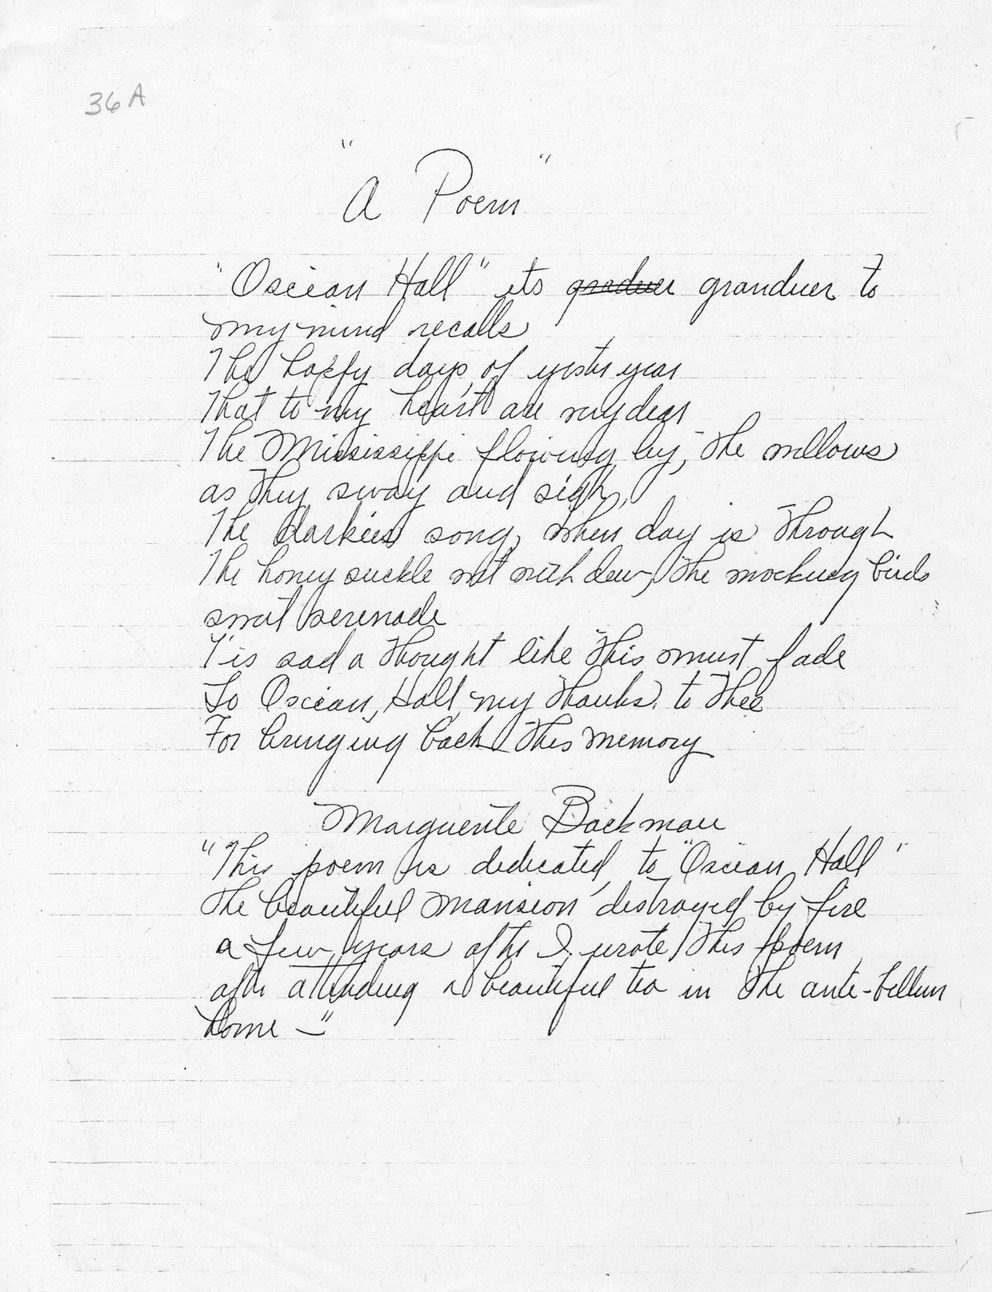 36A
"A Poem"
"Oscian Hall" its graduer granduer to
my mind recalls
The happy days, of yester year
That to my heart are very dear
The Mississippi flowing by, the willows
as they sway and sigh,
The darkies song, when day is through
The honey suckle wet with dew, the mocking birds
sweet serenade
T'is sad a thought like this must fade
To Oscian, Hall, my thanks to thee
For bringing back this memory
Marguerite Backman
"This poem is dedicated, to "Oscian Hall"
the beautiful mansion destroyed by fire
a few years after I wrote this poem,
after attending a beautiful tea in the ante-bellum
home —"